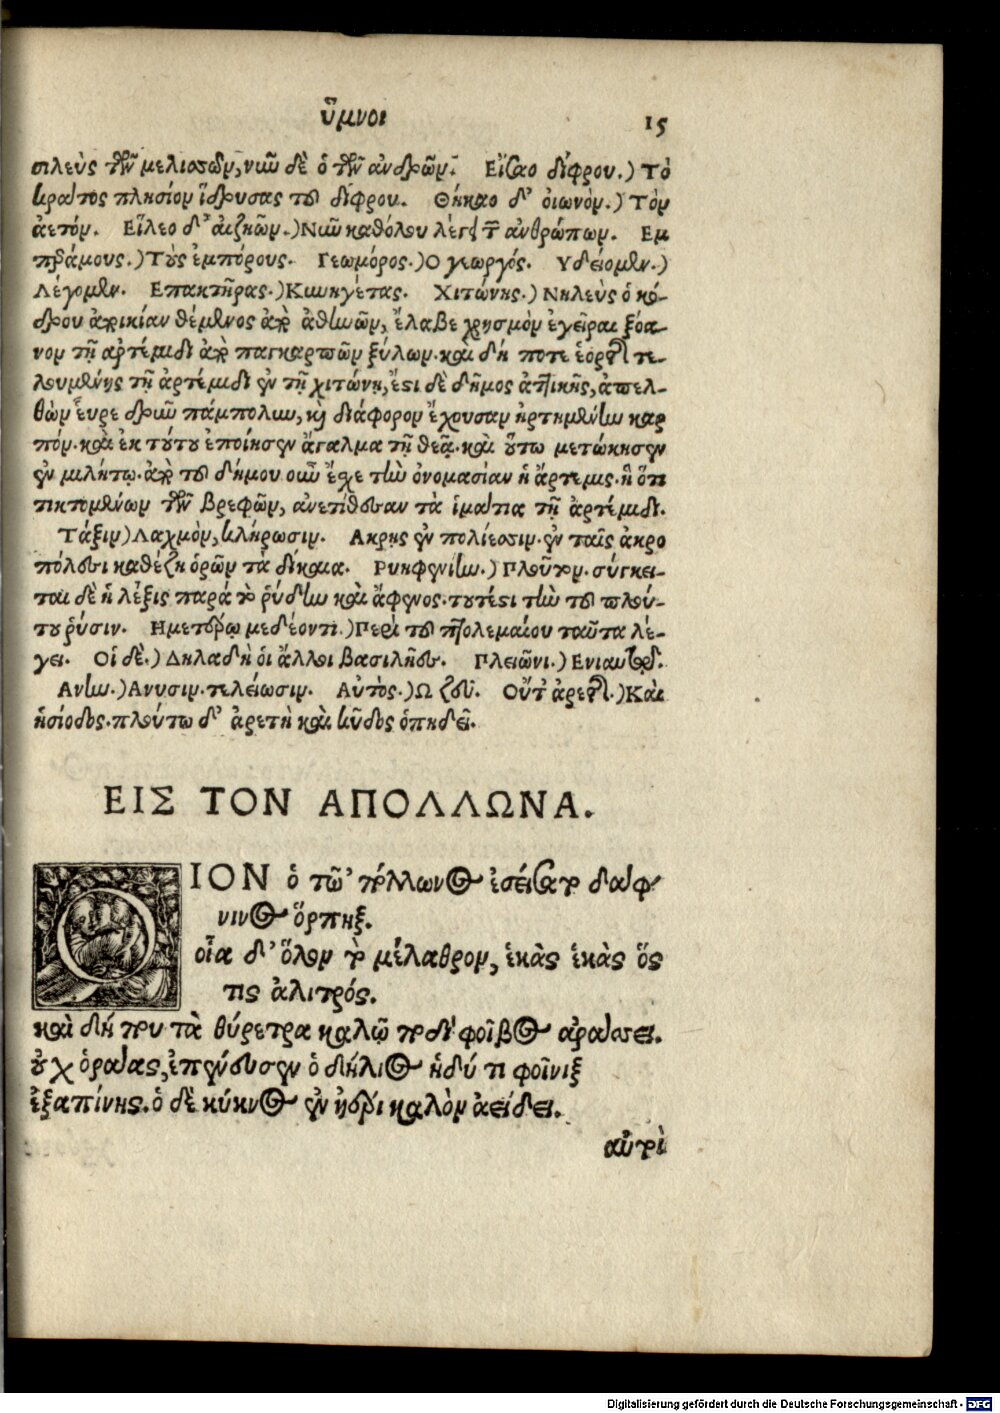 ὕμνοι 15
σιλεὺς τῶν μελισσῶν, νιῶ δὲ ὁ τῶν ἀνδρῶν. Εἵσαο δίφρου.) Τὸ
κράτος πλησίον ἵδρυσας τοῦ δίφρου. Θήκαο δ' οἰωνὸν.) Τὸν
ἀετόν. Εἵλεο δ' αἰζηῶν.) Νῦν καθόλου λέγει τ ἀνθρώπων. Εμ
περάμους.) Τοὺς ἐμπόρους. Γεωμόρος.) Ο γεωργός. Υδείομεν.)
Λέγομεν. Επακτῆρας.) Κυνηγέτας. Χιτώνης.) Νηλεὺς ὁ κό-
δρου ἀποικίαν θέμενος ἀπὸ ἀθηνῶν, ἔλαβε χρησμὸν ἐγεῖραι ξόα-
νον τῇ αρτέμιδι ἀπὸ παγκαρπῶν ξύλων. καὶ δή ποτε ἑορτῆς τε-
λουμένης τῇ ἀρτέμιδι ἐν τῇ χιτώνῃ, ἔστι δὲ δῆμος ἀττικῆς, ἀπελ-
θὼν εὗρε δρῦν πάμπολυν, καὶ διάφορον ἔχουσαν ἠρτημένην καρ
πόν. καὶ ἐκ τούτου ἐποίησεν ἄγαλμα τῇ θεᾷ. καὶ οὕτω μετώκησεν
ἐν μιλήτῳ. ἀπὸ τοῦ δήμου οὖν ἔχε τὴν ὀνομασίαν ἡ ἄρτεμις. ἢ ὅτι
τικτομένων τῶν βρεφῶν, ανετίθεσαν τὰ ἱμάτια τῇ ἀρτέμιδι.
Τάξιν) Λαχμὸν, κλήρωσιν. Ακρης ἐν πολίεσσιν. ἐν ταῖς ἀκρο
πόλεσι καθέζῃ ὁρῶν τὰ δίκαια. Ρυηφενίην.) Πλοῦτον. σύγκει-
ται δὲ ἡ λέξις παρὰ τὸ ῥύδην καὶ ἄφενος. τουτέστι τὴν τοῦ πλού-
του ῥύσιν. Ημετέρῳ μεδέοντι.) Περὶ τοῦ πτολεμαίου ταῦτα λέ-
γει. Οἱ δὲ.) Δηλαδὴ οἱ ἄλλοι βασιλῆες. Πλειῶνι.) Ενιαυτῷ.
Ανην.) Ανυσιν. τελείωσιν. Αὐτὸς.) Ω ζεῦ. Οὔτ' ἀρετῆς.) Καὶ
ἡσίοδος. πλούτῳ δ' ἀρετὴ καὶ κῦδος ὀπηδεῖ.
ΕΙΣ ΤΟΝ ΑΠΟΛΛΩΝΑ.
ΟΙΟΝ ὁ τῶ 'πόλλωνος ἐσείσατο δαφ
νινος ὅρπηξ.
οἷα δ' ὅλον τὸ μέλαθρον, ἑκὰς ἑκὰς ὅς
τις ἀλιτρός.
καὶ δή που τὰ θύρετρα καλῷ ποδὶ φοῖβος ἀράσσει.
οὐχ ὁράας, ἐπένευσεν ὁ δήλιος ἡδύ τι φοῖνιξ
ἐξαπίνης. ὁ δὲ κύκνος ἐν ἠέρι καλὸν ἀείδει.
αὐτοὶ
Digitalisierung gefördert durch die Deutsche Forschungsgemeinschaft - DFG